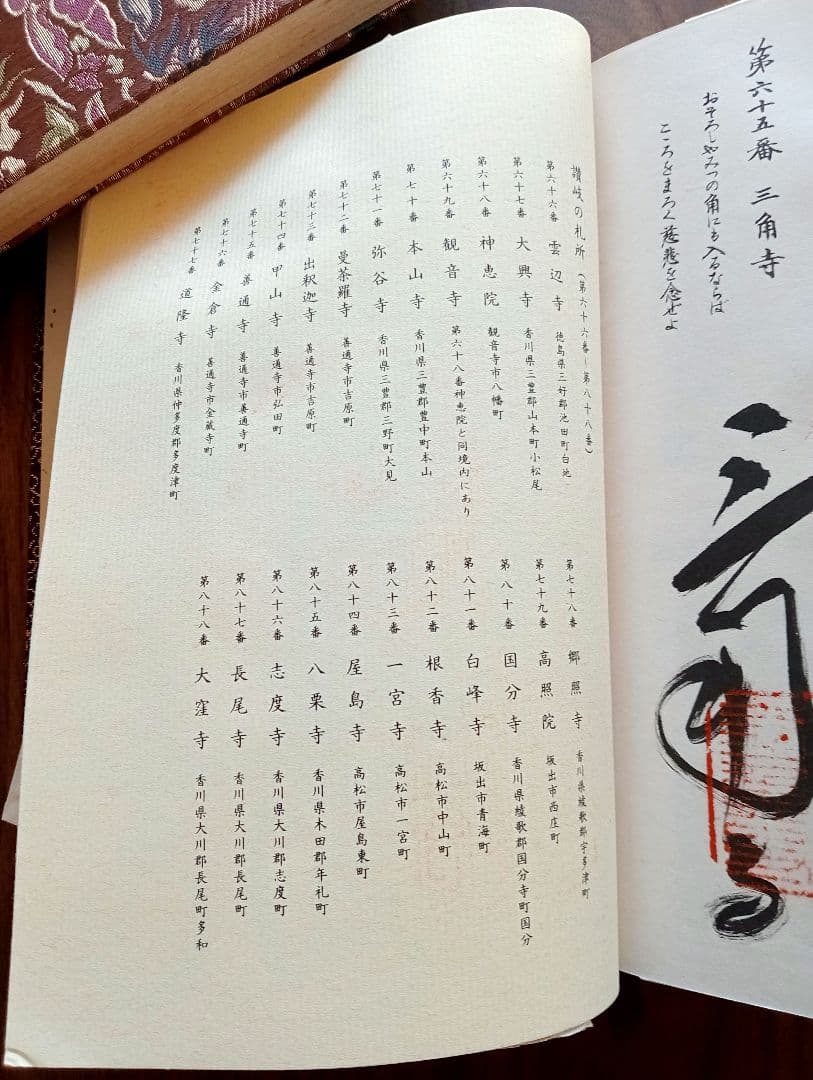 第六十五番 三角寺
おそろしやみつの角にも入るならば
こころをまろく慈悲を念せよ
讃岐の札所（第六十六番－第八十八番）
第六十六番 雲辺寺 徳島県三好郡池田町白地
第六十七番 大興寺 香川県三豊郡山本町小松尾
第六十八番 神恵院 観音寺市八幡町
第六十九番 観音寺 第六十八番神恵院と同境内にあり
第七十番 本山寺 香川県三豊郡豊中町本山
第七十一番 弥谷寺 香川県三豊郡三野町大見
第七十二番 曼荼羅寺 善通寺市吉原町
第七十三番 出釈迦寺 善通寺市吉原町
第七十四番 甲山寺 善通寺市弘田町
第七十五番 善通寺 善通寺市善通寺町
第七十六番 金倉寺 善通寺市金蔵寺町
第七十七番 道隆寺 香川県仲多度郡多度津町
第七十八番 郷照寺 香川県綾歌郡宇多津町
第七十九番 高照院 坂出市西庄町
第八十番 国分寺 香川県綾歌郡国分寺町国分
第八十一番 白峰寺 坂出市青海町
第八十二番 根香寺 高松市中山町
第八十三番 一宮寺 高松市一宮町
第八十四番 屋島寺 高松市屋島東町
第八十五番 八栗寺 香川県木田郡牟礼町
第八十六番 志度寺 香川県大川郡志度町
第八十七番 長尾寺 香川県大川郡長尾町
第八十八番 大窪寺 香川県大川郡長尾町多和